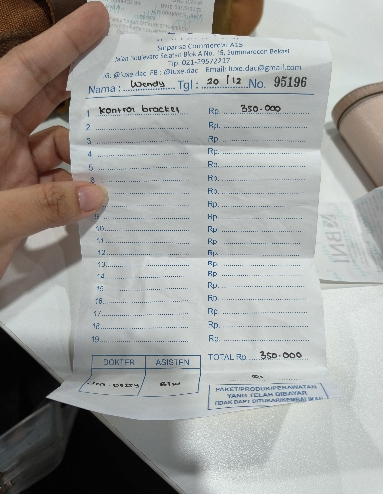 Sinpansa Commercial A15
Jalan Boulevard Selatan Blok A No. 15, Summarecon Bekasi
Tlp. 021-29572217
IG: @luxe.dac FB: @luxe.dac Email: luxe.dac@gmail.com
Nama: Wendy Tgl: 20/12 No. 95196
1 Kontrol bracket Rp. 350.000
2 Rp.
3 Rp.
4 Rp.
5 Rp.
6 Rp.
Rp.
8 Rp.
9 Rp.
10 Rp.
11 Rp.
12 Rp.
13 Rp.
14 Rp.
15 Rp.
16 Rp.
17 Rp.
18 Rp.
19 Rp.
TOTAL Rp 350.000
DOKTER ASISTEN
PAKET/PRODUK/PERAWATAN
YANG TELAH DIBAYAR
TIDAK DAPT DITUKAR/KEMBALIKAN
BNI